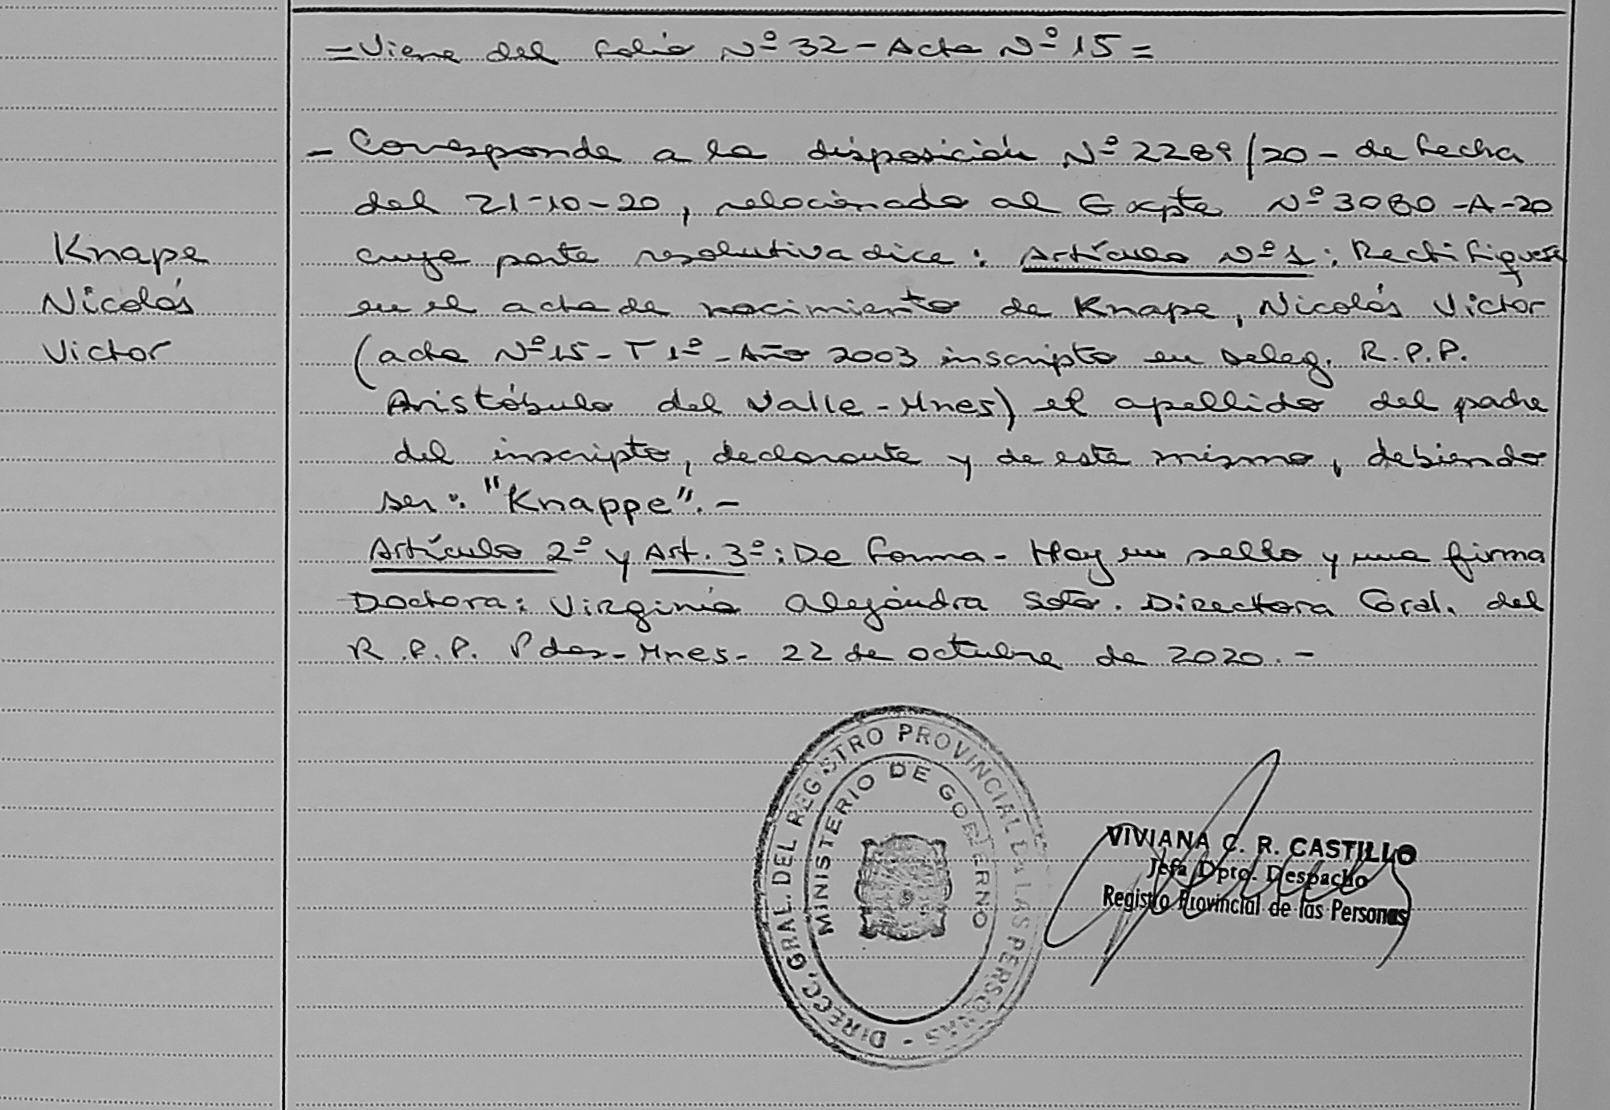 =Viene del folio Nº 32-Acta Nº 15=
- Corresponde a la disposición Nº 2289/20- de fecha
del 21-10-20, relacionado al Expte Nº 3080-A-20
Knape
cuya parte resolutiva dice: Artículo Nº 1: Rectifiquese
Nicolás
en el acta de nacimiento de Knape, Nicolás Victor
Victor
(acta Nº 15- T 1º- Año 2003 inscripto en Deleg. R.P.P.
Aristóbulo del Valle-Mnes) el apellido del padre
del inscripto, declarante y de este mismo, debiendo
ser: "Knappe".-
Artículo 2º y Art. 3º: De forma- Hay un sello y una firma
Doctora: Virginia Alejandra Soto. Directora Gral. del
R.P.P. Pdas-Mnes- 22 de octubre de 2020.-
DIRECC. GRAL. DEL REGISTRO PROVINCIAL DE LAS PERSONAS -
MINISTERIO DE GOBIERNO
VIVIANA C. R. CASTILLO
Jefa Dpto. Despacho
Registro Provincial de las Personas